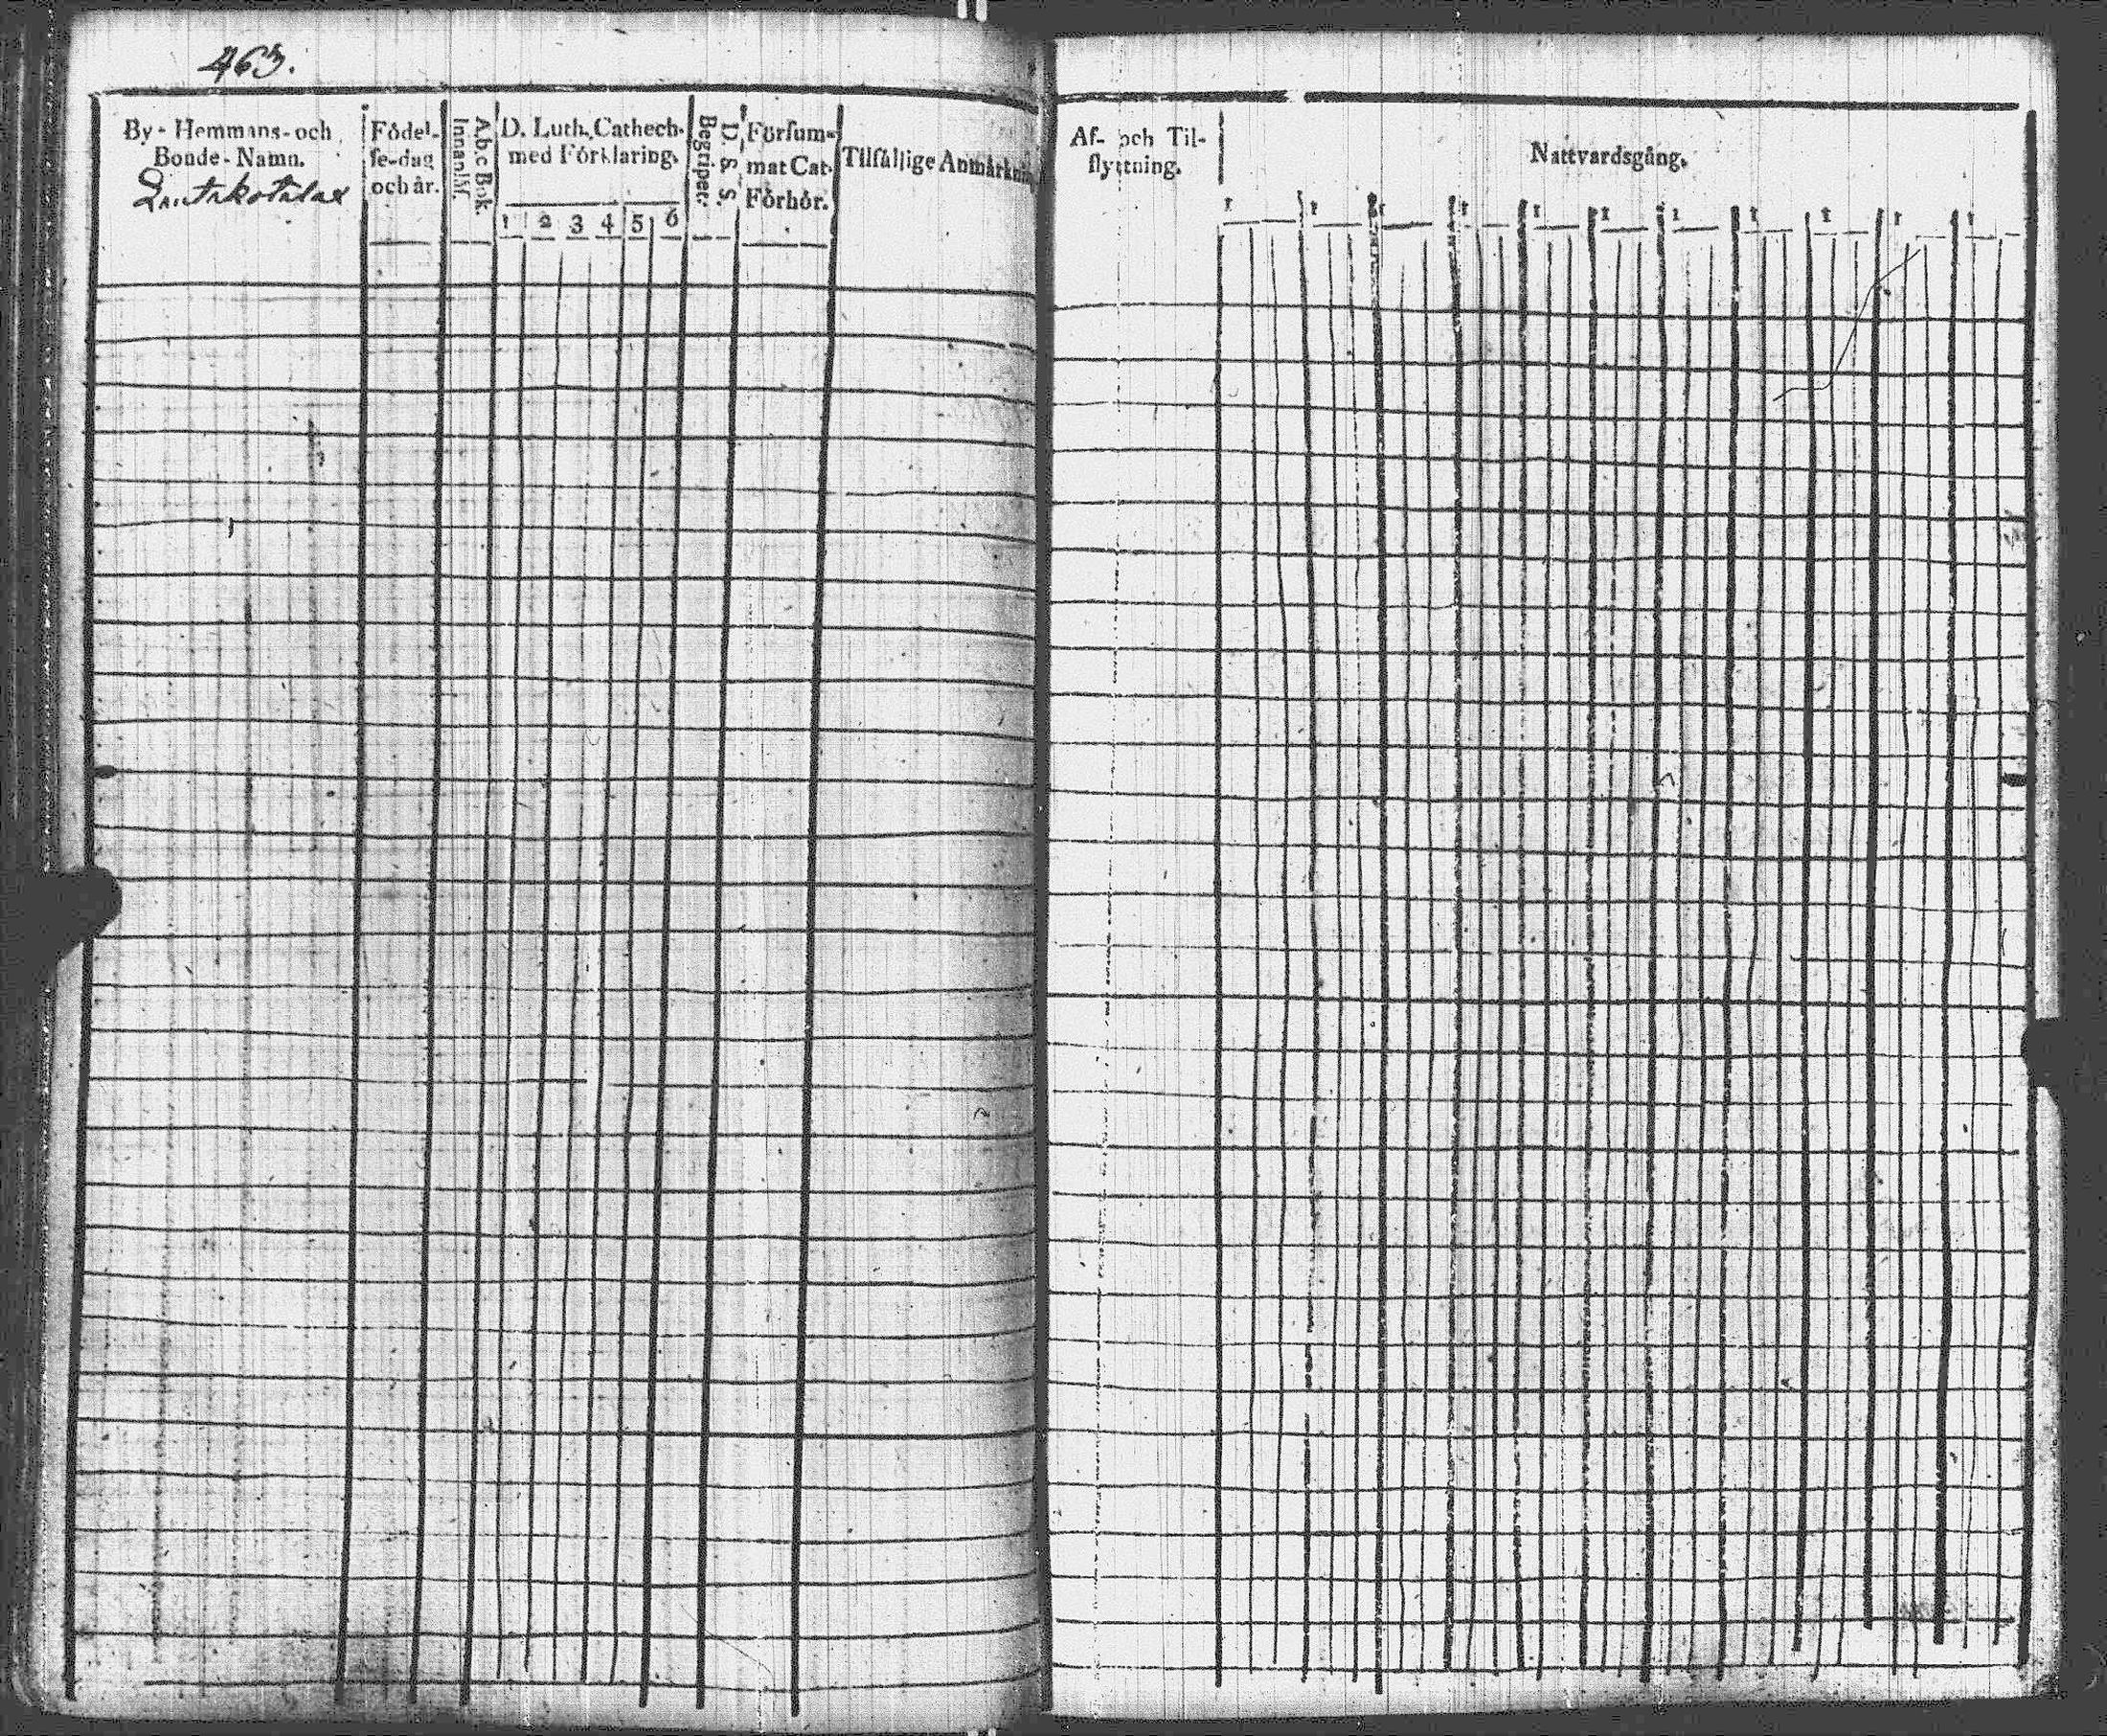 463.
By-Hemmans-och
Bonde-Namn.
Födel-
se-dag
och år.
A b c Bok.
Innantil.
D. Luth. Cathech.
med Förklaring.
1 2 3 4 5 6
D. S. S.
Begripet.
Försum-
mat Cat.
Förhör.
Tilfällige Anmärknin
Af- och Til-
flyttning.
Nattvardsgång.
1 1 1 1 1 1 1 1 1 1 1